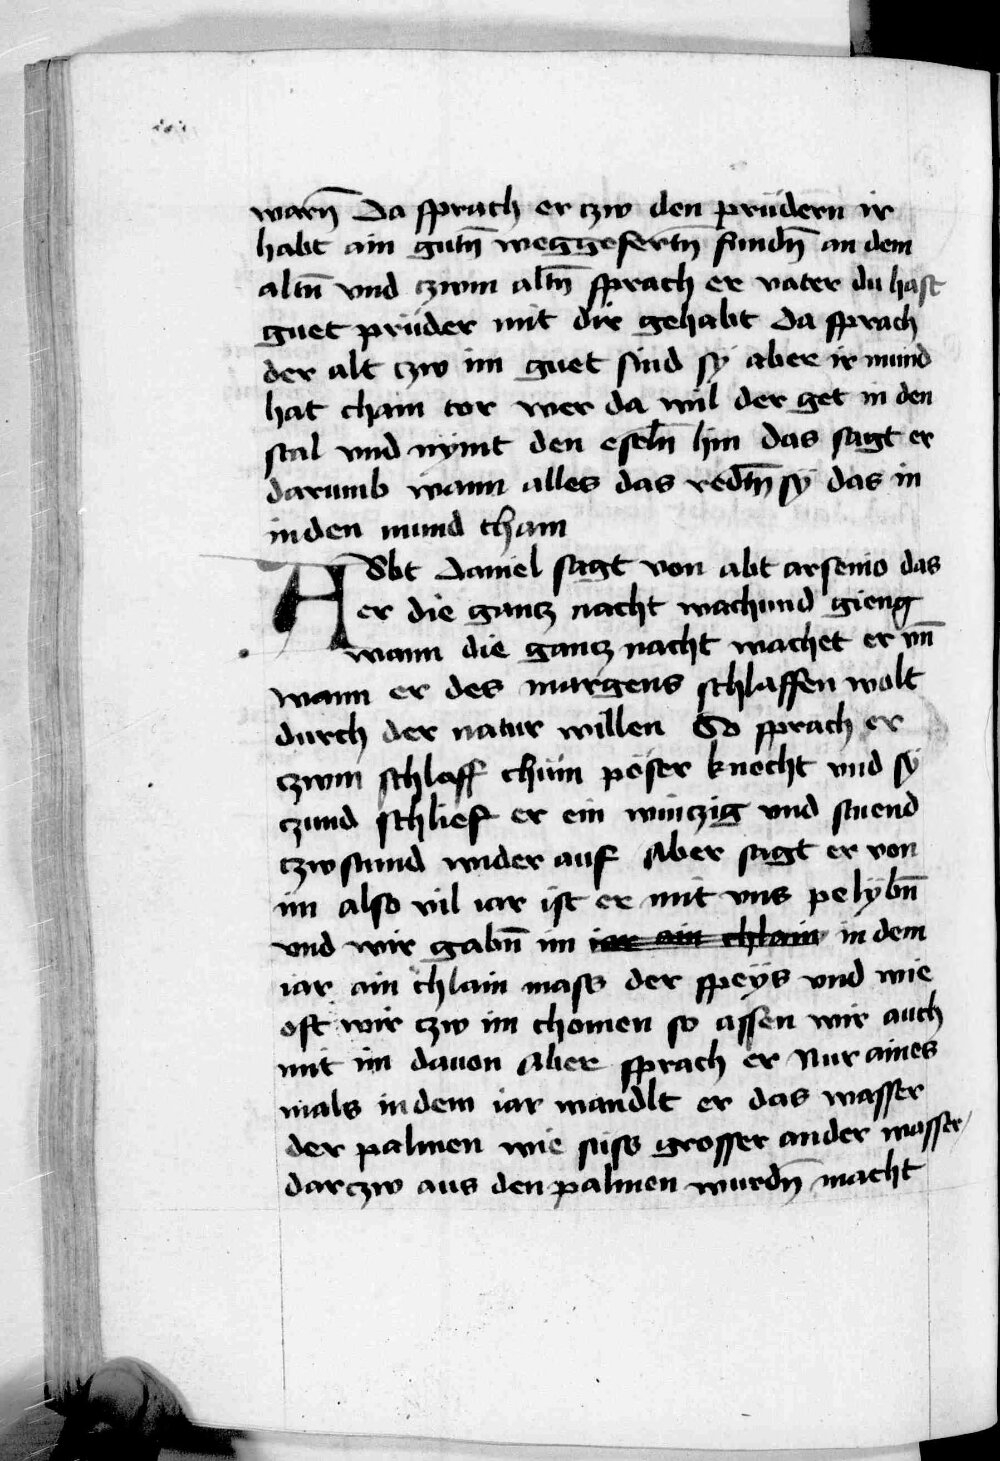 warn̄ Da sprach er czw den prüdern ir
habt ain gutn̄ weggefertn̄ fundn̄ an dem
altn̄ vnd czwm altn̄ sprach er vater du hast
guet prüder mit dir gehabt Da sprach
der alt czw im guet sind sÿ aber ir mund
hat chain tor wer da wil der get in den
stal vnd nÿmt den eseln̄ hin das sagt er
darumb wann alles das redtn̄ sÿ das in
in den mund cham
Abbt Daniel sagt von abt arsenio das
er die gancz nacht wachund gieng
wann die gancz nacht wachet er vn̄
wann er des margens schlaffen wolt
durch der natur willen So sprach er
czwm schlaff chüm pöser knecht vnd sÿ
czund schlief er ein winczig vnd stuend
czwstund wider auf Aber sagt er von
im also vil iar ist er mit vns pelÿbn̄
vnd wir gabn̄ im iar ain chlain in dem
iar ain chlain mass der speÿs vnd wie
oft wir czw im chomen so assen wir auch
mit im dauon Aber sprach er Nur aines
mals in dem iar wandlt er das wasser
der palmen wie süss grosser ander wasser
darczw aus den palmen wurdn̄ macht